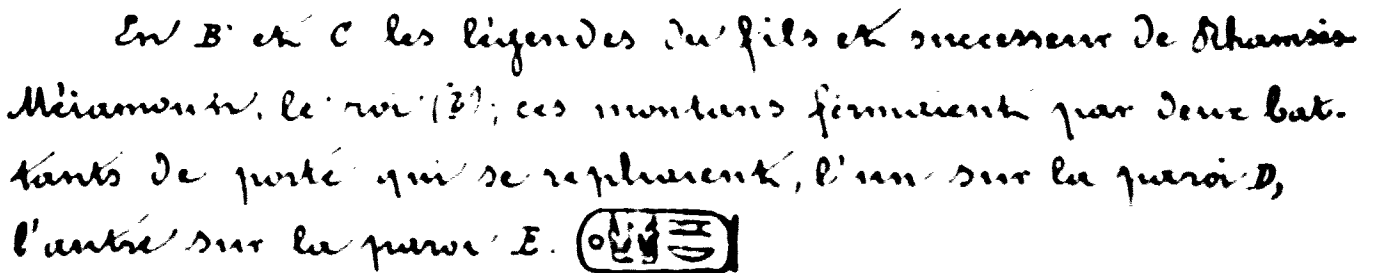 En B et C les légendes du fils et successeur de Rhamsès
Méiamoun, le roi (2); ces montans fermaient par deux bat-
tants de porte qui se repliaient, l'un sur la paroi D,
l'autre sur la paroi E.